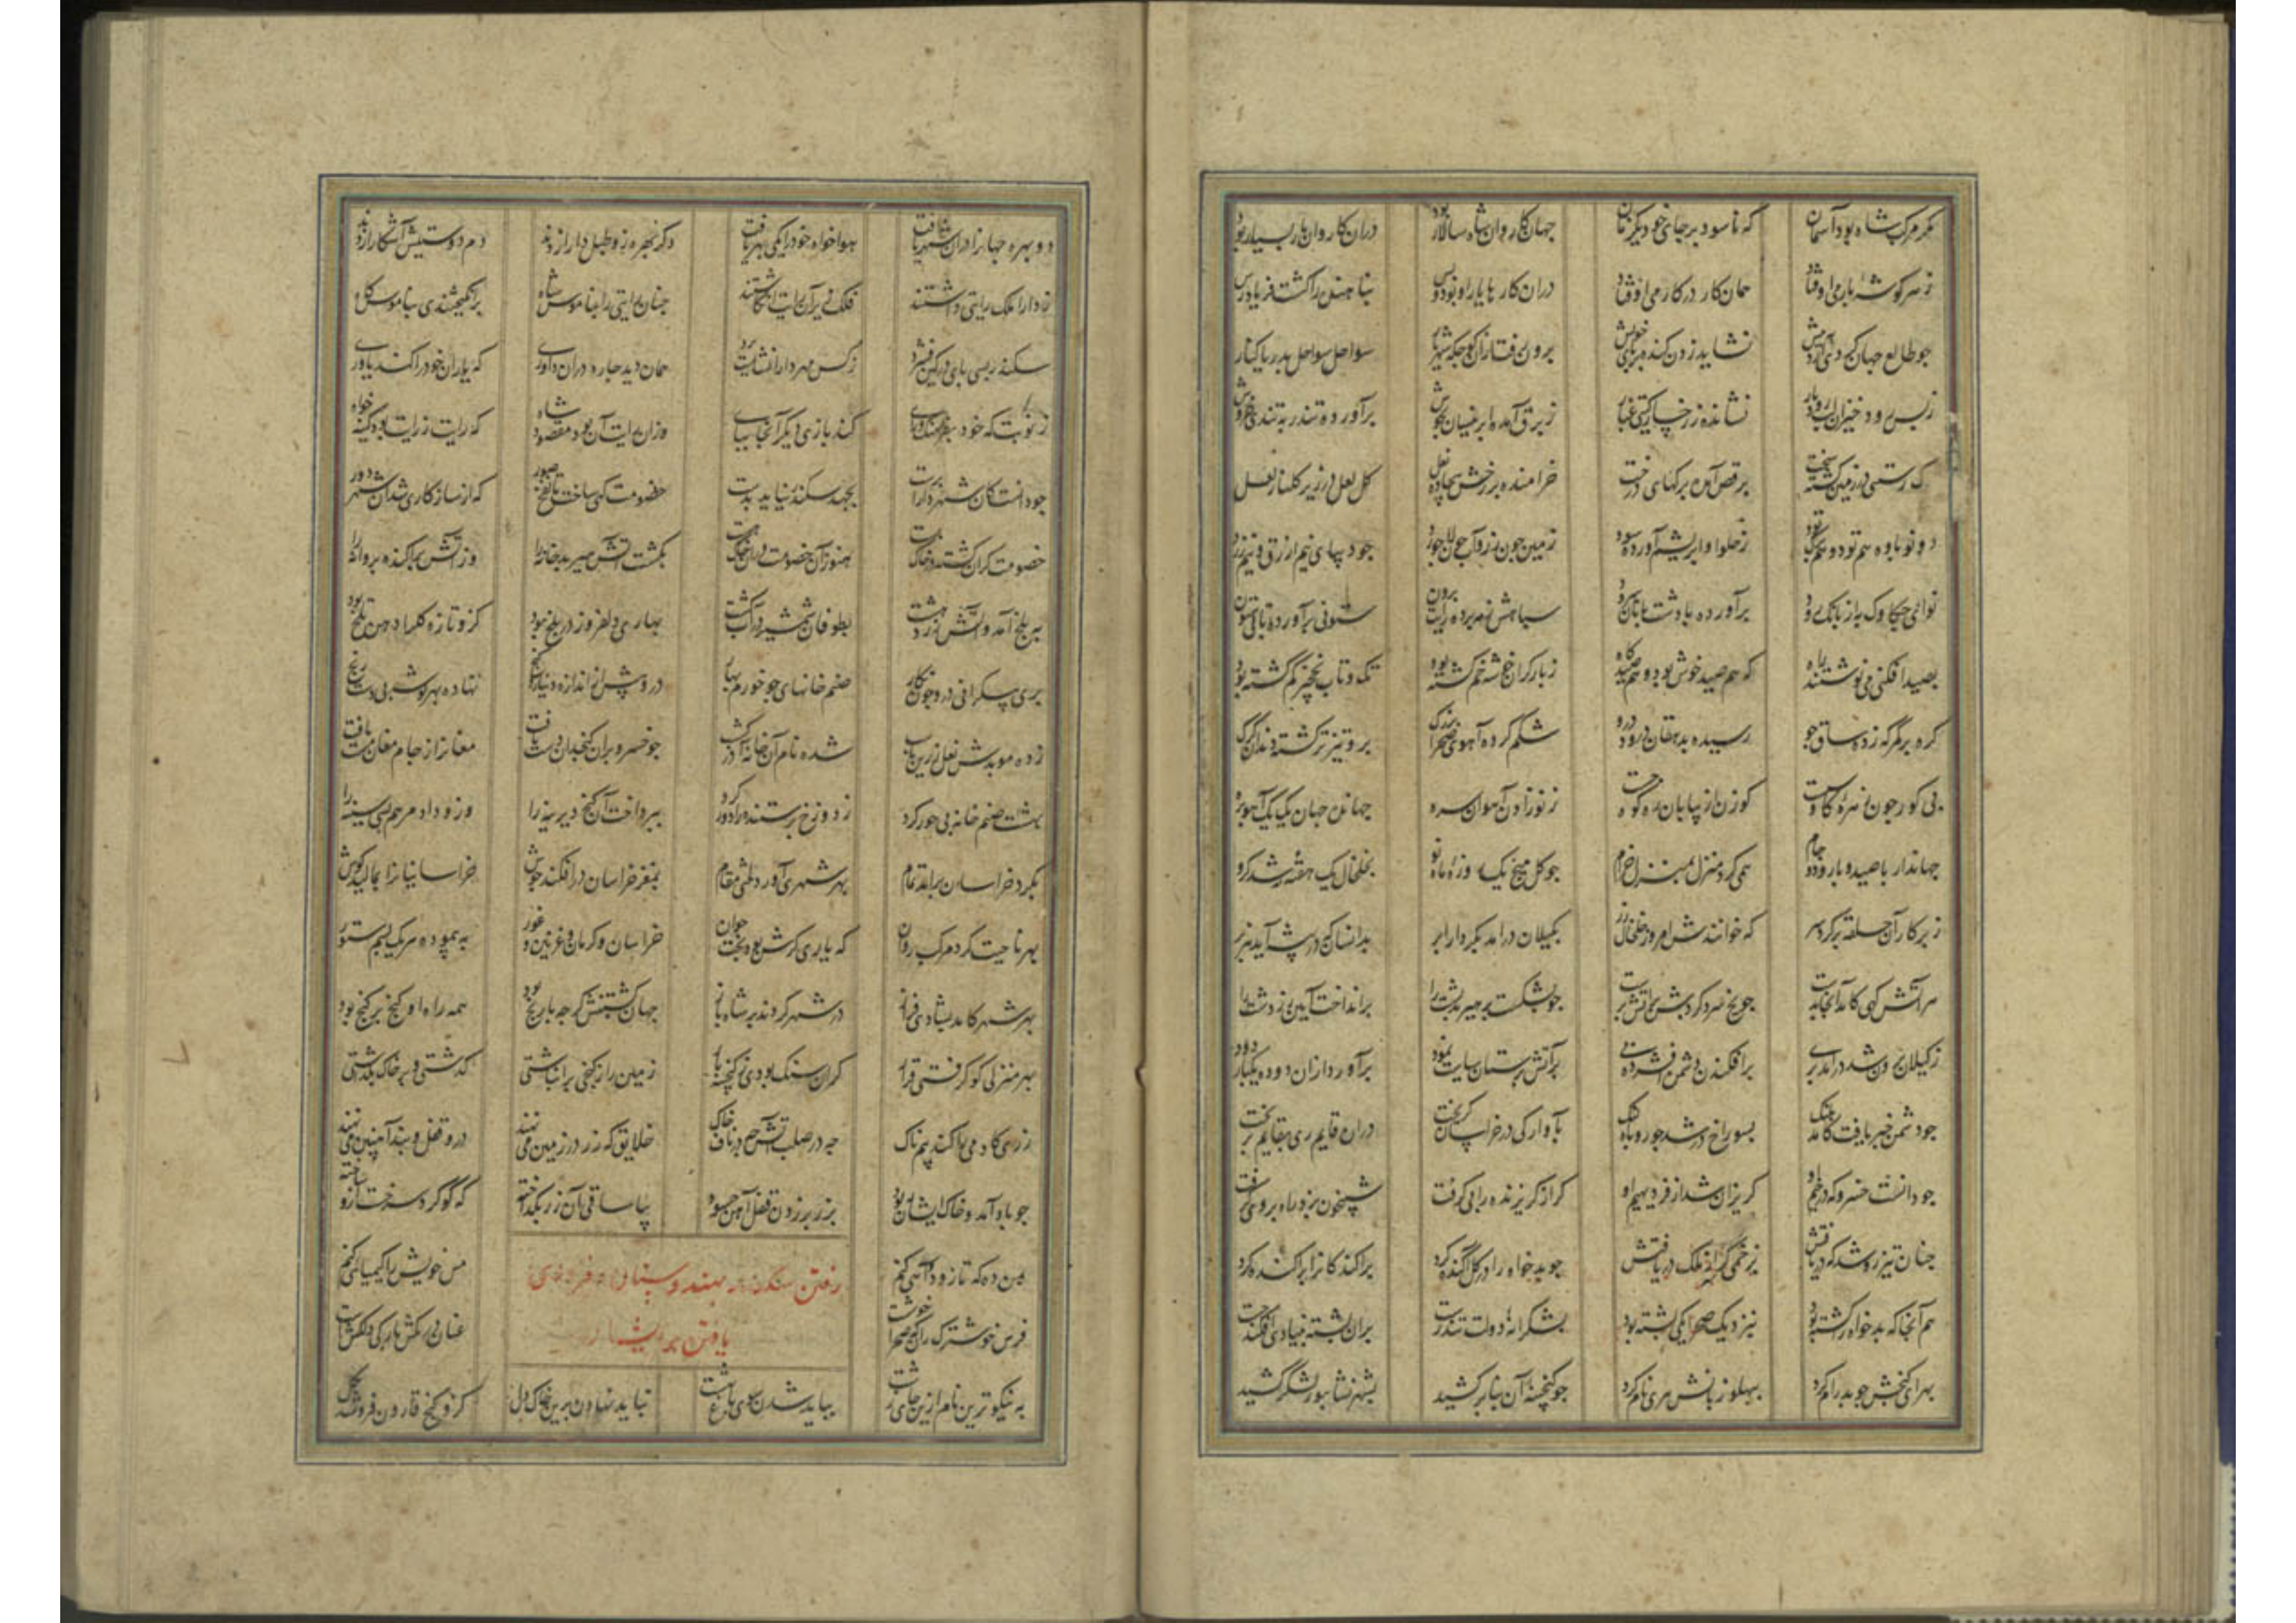 مکر مرکب شاه بود آسمان که ناسود بر جای خود یکزمان جهان کاروان شاه سالار بود دران کاروان بار بسیار بود
ز سر کوشه باری می اوفتاد همان کار در کار می اوفتاد دران کارها یار او بود و بس پناهنده را کشت فریادرس
جو طالع جهان نشاید زدن کنده بر پای خویش برون رفت ازان کوجکه شهریار سواحل سواحل بدریا کنار
ز بس رود خیزان لب رودبار نشانده ز رخسار کیتی غبار ز برق آمده ابر نیسان بجوش برآورده تندر به تندی خروش
رستنی در زمین کشته سخت برقص آمده برکهای درخت خرامنده بر رخش بیجاده نعل کل لعل در زیر کلنار لعل
دو نوباوه هم تود و هم برک تود ز حلوا و ابریشم آورده سود زمین جون زر و آب جون لاجورد جو دیبای نیم ازرق و نیم زرد
نوای جکاوک به از بانک رود برآورده با دشتبانان سرود سپاهش ز مه برده رایت برون ستونی برآورده تا بی ستون
بصید افکنی می نوشتند راه که هم صید خوش بود و هم صیدکاه ز بار کران خوشه خم کشته بود تک و تاب نخچیر کم کشته بود
کره بر کمر که زده ساق جو رسیده بدهقان درود درو شکم کرده آهوی صحرا بزرک برو تیزتر کشته دندان کرک
پی کور جون زهره کاو سست کوزن از بیابان ره کوه جست ز نوزادن آهوان سره جهان در جهان یک بیک آهوبره
جهاندار با صید و با رود و جام همی کرد منزل بمنزل خرام جو کل میخ یک روزه ماه نو بخلخال یک هفته زر شد کرو
ز پرکار آن حلقه بر کرد سر که خوانندش امروز خلخال زر بکیلان درامد بکردار ابر بدانسان که در بیشه آید هزبر
هر آتش کهی کامد آنجا بدست جو یخ سرد کردش بر آتش پرست جو بشکست بر هیربد پشت را برانداخت آیین زردشت را
ز کیلان برون شد درامد بری برافکند بر دشمن افسرده پی بر آتش پرستان سیاست نمود برآورد ازان دوده یکباره دود
جو دشمن خبر یافت کامد پلنک بسوراخ در شد جو روباه لنک بآوارکی در خراسان کریخت دران قایم ری بقایم بریخت
جو دانست خسرو که بدخم او کریزان شد از فر دیهیم او کراز کریزنده را پی کرفت شبیخون بزد راه بروی کرفت
جنان تیزرو شد که دریافتش ز ملک برتافتش جو بدخواه را در کل آکنده کرد پراکندکانرا پراکنده کرد
هم آنجا که بدخواه را کشته بود بنزدیک صحرا یکی پشته بود بشکرانه دولت تندرست بران پشته بنیادی افکند جست
بهرای کنجش جو بدرام کرد بپهلو زبانش هری نام کرد جو کنجینه آن بنا بر کشید بشهر نشابور لشکر کشید
دو بهره جهانرا دران شهر یافت هواخواه خود را یکی بهر یافت دکر بهره زو طبل دارا زدند دم دوستیش آشکارا زدند
ز دارا ملک رایتی داشتند فلک زیر آن رایت انکاشتند جنان رایتی را بناموس شاه برانکیختندی بناموسکاه
سکندر بسی پای در کین فشرد ز کس مهر دارا نشایست برد همان دید جاره دران داوری که یاران خود را کند یاوری
ز نوبت که خود کند بازی دیکر آنجا بپای وزان رایت آن بود مقصود شاه که رایت ز رایت بود کینه خواه
جو دانست کان شهر دارا پرست بجهد سکندر نیاید بدست خصومت کهی ساخت تا نفخ صور که از سازکاری شد آن شهر دور
خصومت کران کشته در خاک پست هنوز آن خصومت دران خاک هست بکشت آتش هیربد خانه را وز آتش پراکنده پروانه را
به بلخ آمد و آتش زردهشت بطوفان شمشیر در آب کشت بهاری دلفروز در بلخ بود کزو تازه کل را دهن تلخ بود
پری پیکرانی درو جون نکار صنم خانهای جو خرم بهار درو بیش از اندازه دینار کنج نهاده بهر کوشه بی دست رنج
زده موبدش نعل زرین شده نام آن خانه آذر کشسب جو خسرو بران کنجدان دست یافت مغانرا ز جام مغان مست یافت
بهشت صنم خانه بی حور کرد ز دوزخ پرستنده را دور کرد بپرداخت آن کنج دیرینه را وزو داد مرهم بسی سینه را
بکرد خراسان برامد تمام بهر شهری آورد لختی مقام بمغز خراسان درافکند جوش خراسانیانرا بمالید کوش
بهر ناحیت کرد مرکب روان که یاریکرش بود بخت جوان خراسان و کرمان و غزنین و غور به پیمود هر یک بسم ستور
بهر شهر کامد بشادی فراز در شهر کردند بر شاه باز جهان کشتنش کرجه با رنج بود همه راه او کنج بر کنج بود
بهر منزلی کو کرفتی قرار کران سنک بودی ز کنجینه بار زمین را ز کنجی برانباشتی کذشتی و بر خاک بکذاشتی
زری کادمی را کند بیم ناک جه در صلب آتش جه در ناف خاک خلایق که زر در زمین می نهند درو قفل و بند آهنین می نهند
جو باد آمد و خاک ایشان ربود بزر بر زدن قفل آهن جه سود بیا ساقی آن زر بکداخته که کوکرد سرخست ازو ساخته
بمن ده که تا زو دوایی کنم مس خویش را کیمیایی کنم
رفتن سکندر بهندوستان
یافتن بر
فرس خوشترک ران که صحرا خوشست عنان درمکش بارکی دلکشست
به نیکوترین نام ازین جای زشت بباید شدن سوی باغ بهشت نباید نهادن برین خاک دل کزو کنج قارون فروشد بکل